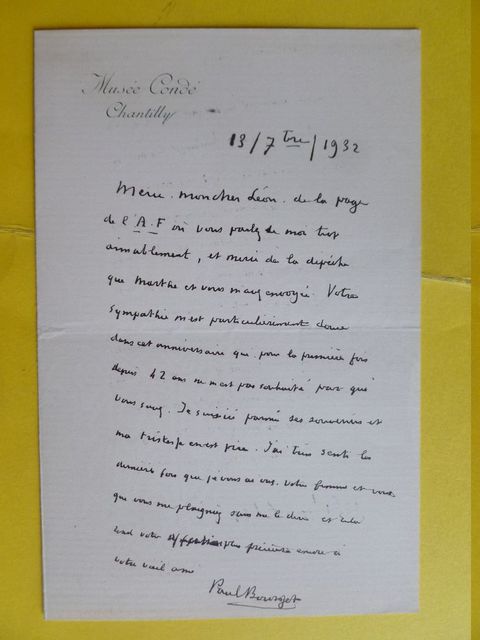 Musée Condé
Chantilly
13/7tre/1932
Merci, mon cher Léon, de la page
de l'A.F où vous parlez de moi trop
aimablement, et merci de la dépêche
que Marthe et vous m'avez envoyée. Votre
sympathie m'est particulièrement douce
dans cet anniversaire qui pour la première fois
depuis 42 ans ne m'est pas souhaité par qui
vous savez. Je suis ici parmi ses souvenirs et
ma tristesse en est pire. J'ai très senti la
dernière fois que je vous ai vus, votre femme et vous,
que vous me plaigniez sans me le dire et cela
rend votre affection plus précieuse encore à
votre vieil ami
Paul Bourget